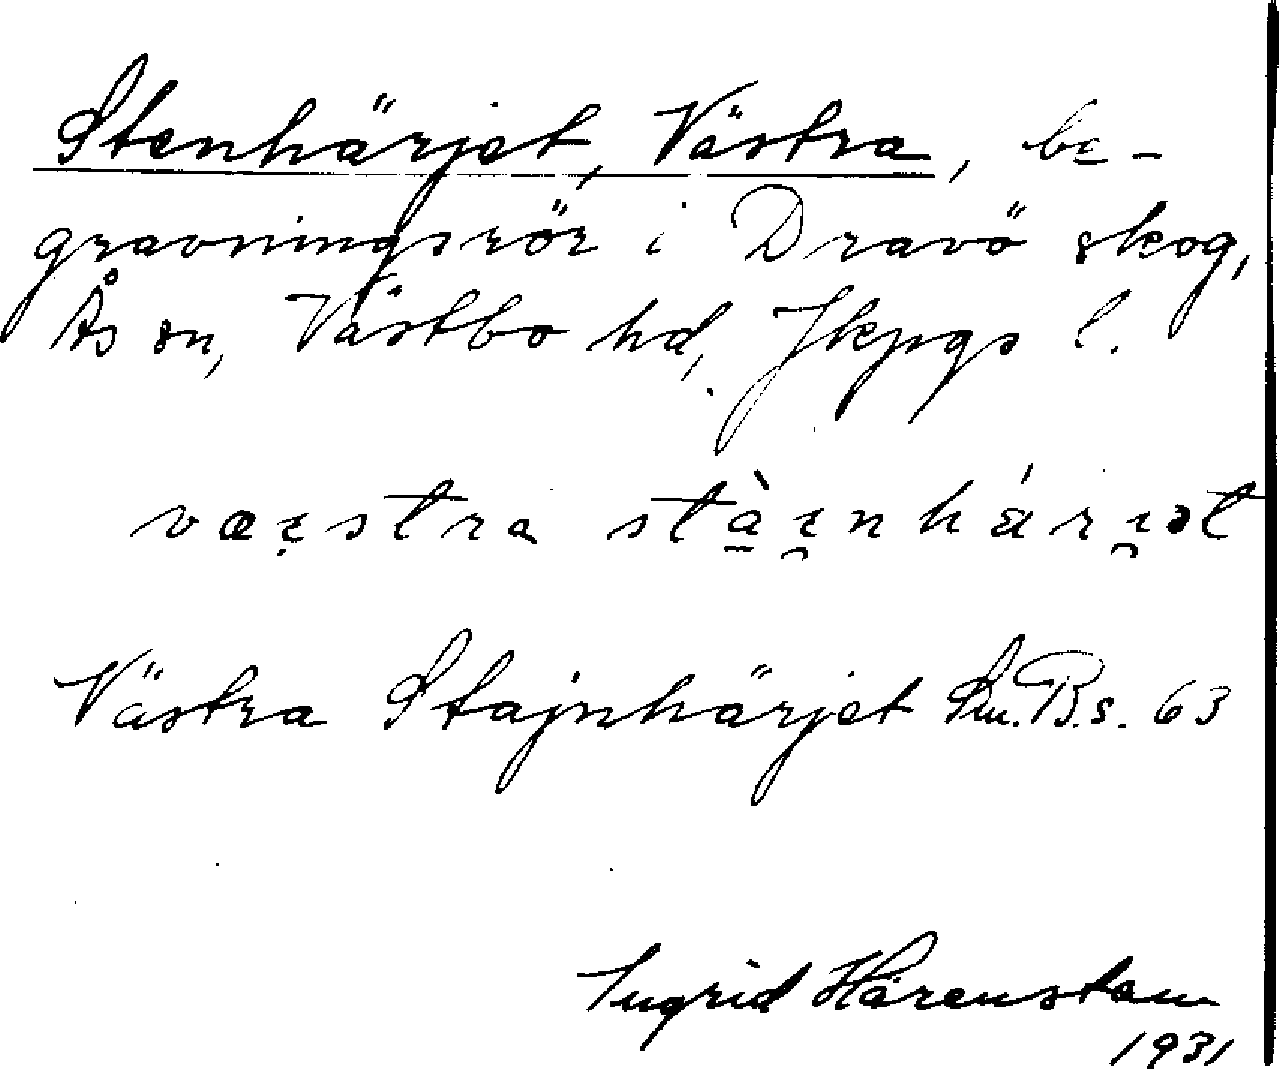 Stenhärjet, Västra, be-
gravningsrör i Dravö skog,
Ås sn, Västbo hd, Jkpgs l.
Västra Stajnhärjet Sm.B.s. 63
Ingrid Härenstam
1931